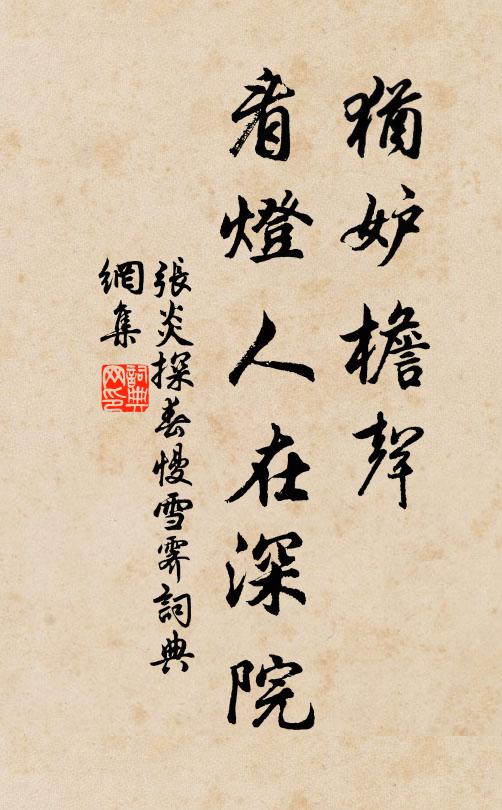 猶妒檐聲
看燈人在深院
張炎探春慢雪霽詞典
網集
詞典
网印